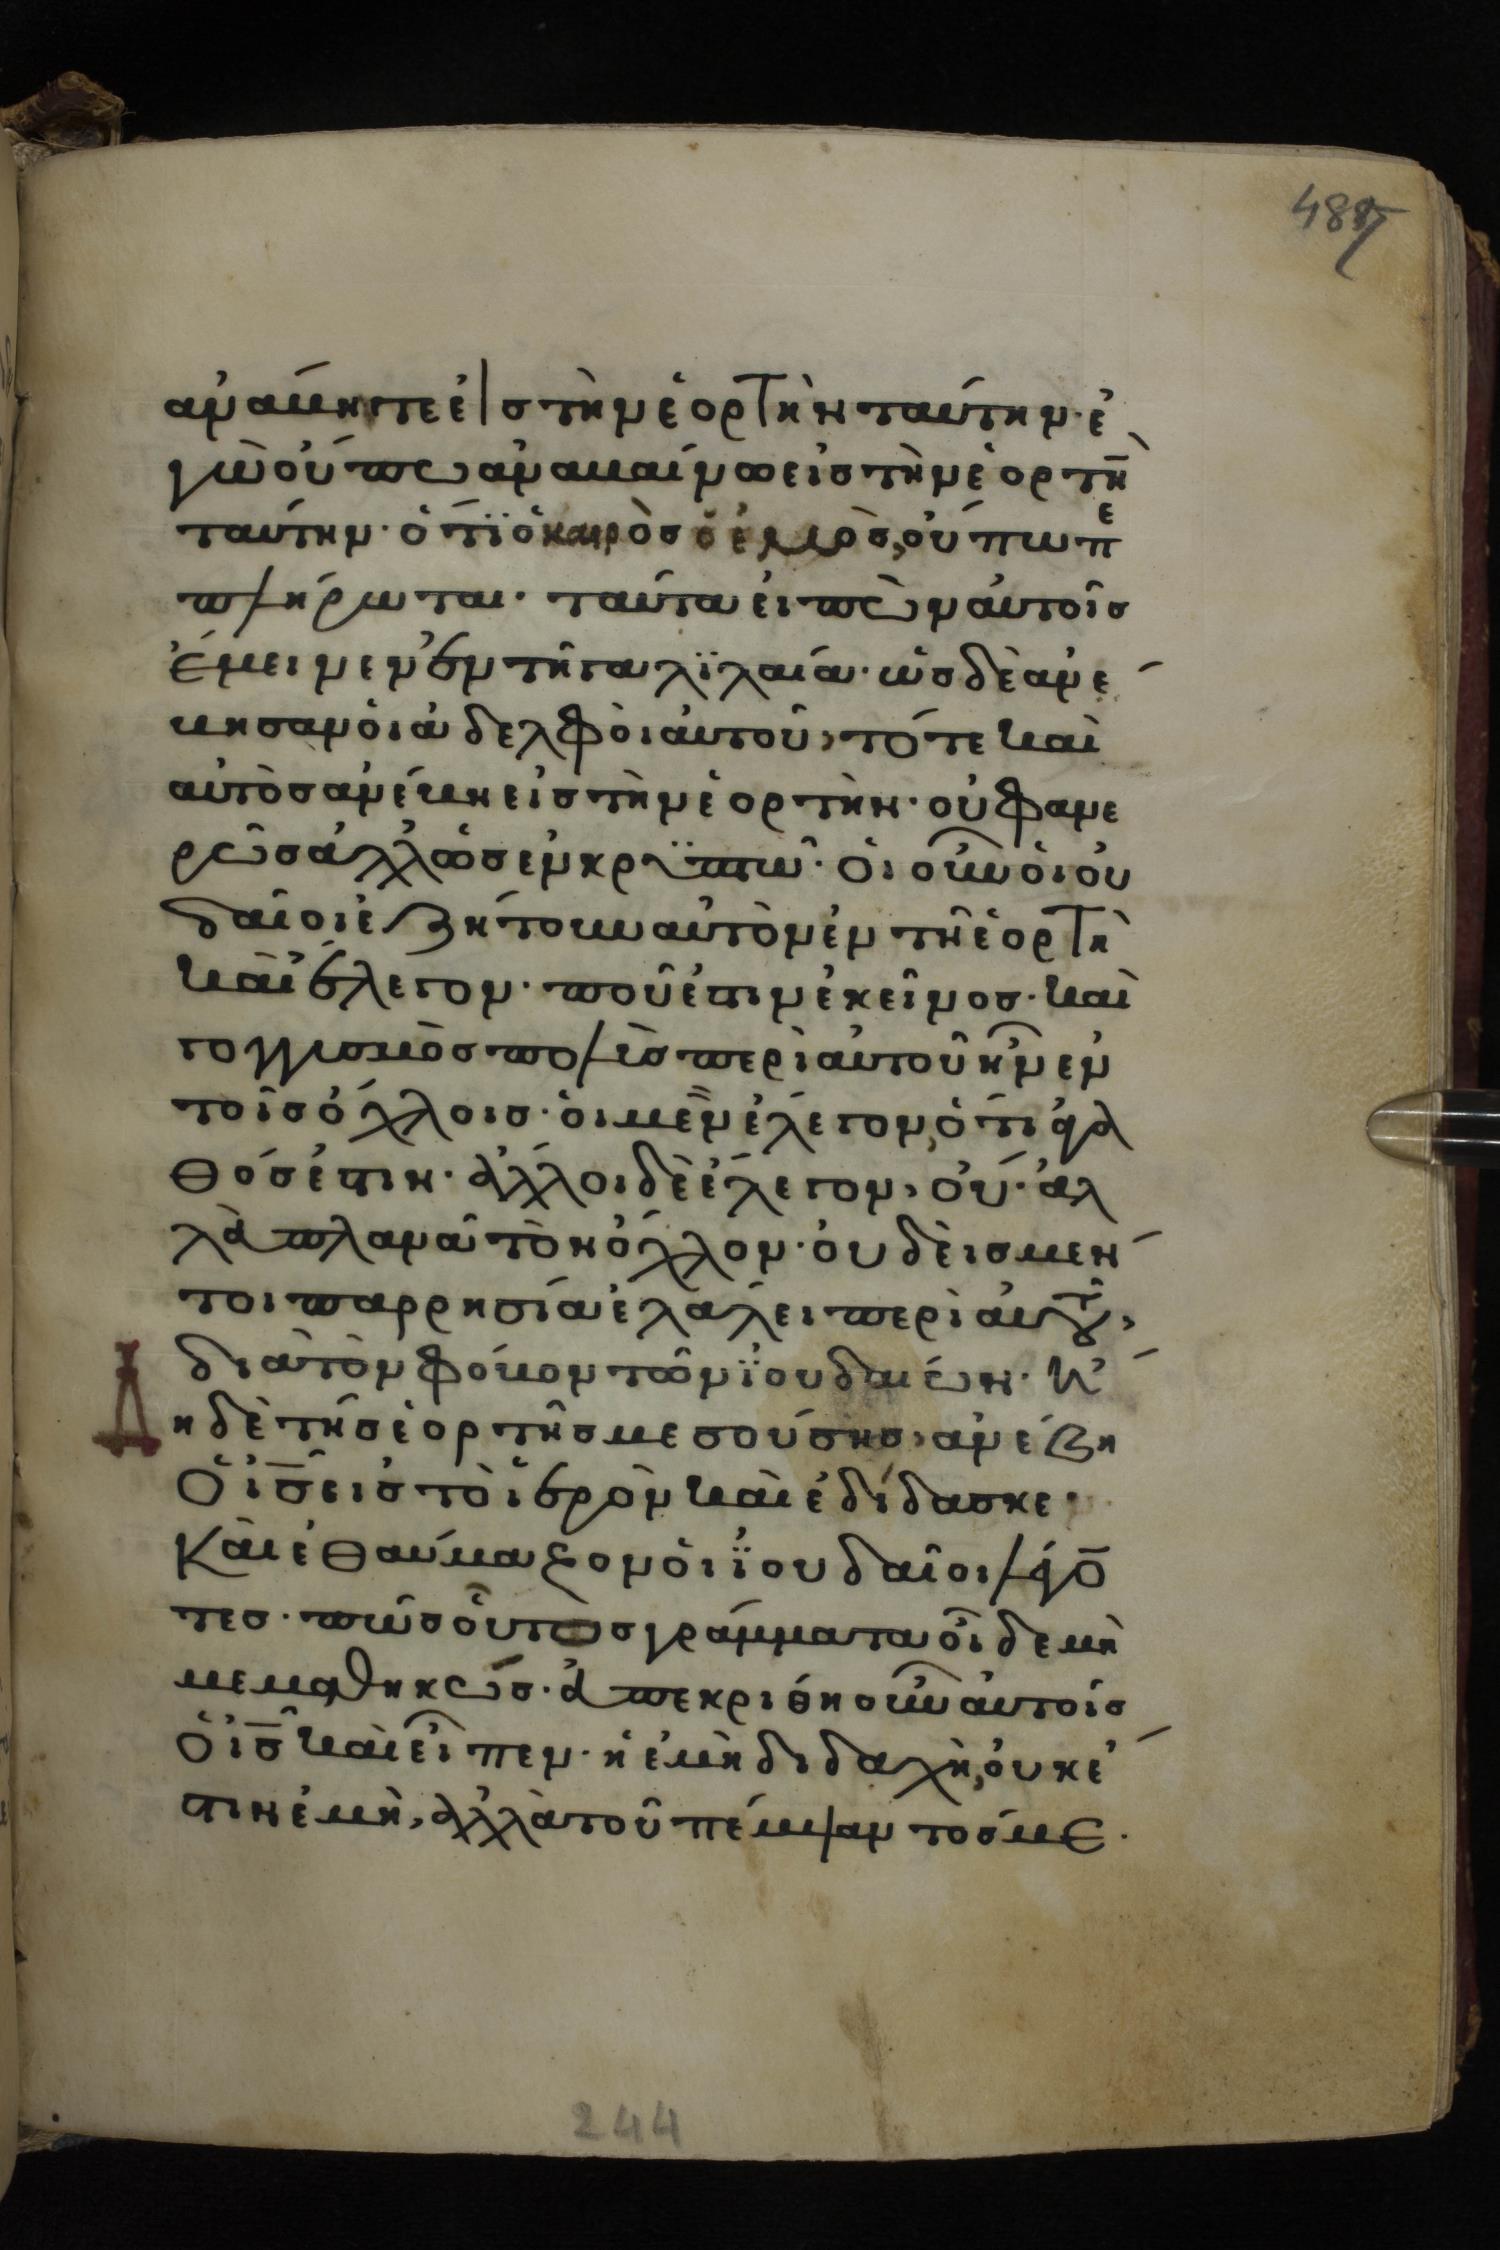 487
ἀνάβητε εἰς τὴν ἑορτὴν ταύτην· ἐ
γὼ οὔπω ἀναβαίνω εἰς τὴν ἑορτὴ̄
ταύτην· ὅτι ὁ καιρὸς ὁ ἐμὸς, οὔπω πε
πλήρωται· ταῦτα εἰπὼν αὐτοῖς
ἔμεινεν ἐν τῆ γαλϊλαία· ὡς δὲ ἀνέ
βησαν ὁι ἀδελφὸι αὐτοῦ, τότε καὶ
αὐτὸς ἀνέβη εἰς τὴν ἑορτὴν· οὐ φανε
ρῶς ἀλλ' ὡς ἐν κρϋπτῶ· ὁι οὖν ἰου
δαῖοι ἐζήτουν αὐτὸν ἐν τῆ ἑορτῆ
καὶ ἔλεγον· ποῦ ἐστιν ἐκεῖνος· καὶ
γογγυσμὸς πολὺς περὶ αὐτοῦ ἦν ἐν
τοῖς ὄχλοις· ὁι μὲν ἔλεγον, ὅτι ἀγα
θός ἐστιν· ἄλλοι δὲ ἔλεγον, οὔ· ἀλ
λὰ πλανᾶ τὸν ὄχλον· ὀυδὲις μέν
τοι παρρησία ἐλάλει περὶ αὐτοῦ,
διὰ τὸν φόβον τῶν ϊουδαίων· ἤ
η δὲ τῆς ἑορτῆς μεσούσης, ἀνέβη
Ὁ ἰ̅ς̅ εἰς τὸ ἱερὸν καὶ ἐδίδασκε·
Καὶ ἐθαύμαζον ὁι ϊουδαῖοι λέγο̄
τες· πῶς οὗτος γράμματα οἶδε μὴ
μεμαθηκώς· ἀπεκρίθη οὖν ἀυτοῖς
Ὁ ἰ̅ς̅ καὶ εἶπεν· ἡ ἐμὴ διδαχὴ, ὀυκ ἔ
στιν ἐμὴ, ἀλλὰ τοῦ πέμψαντός με·
244